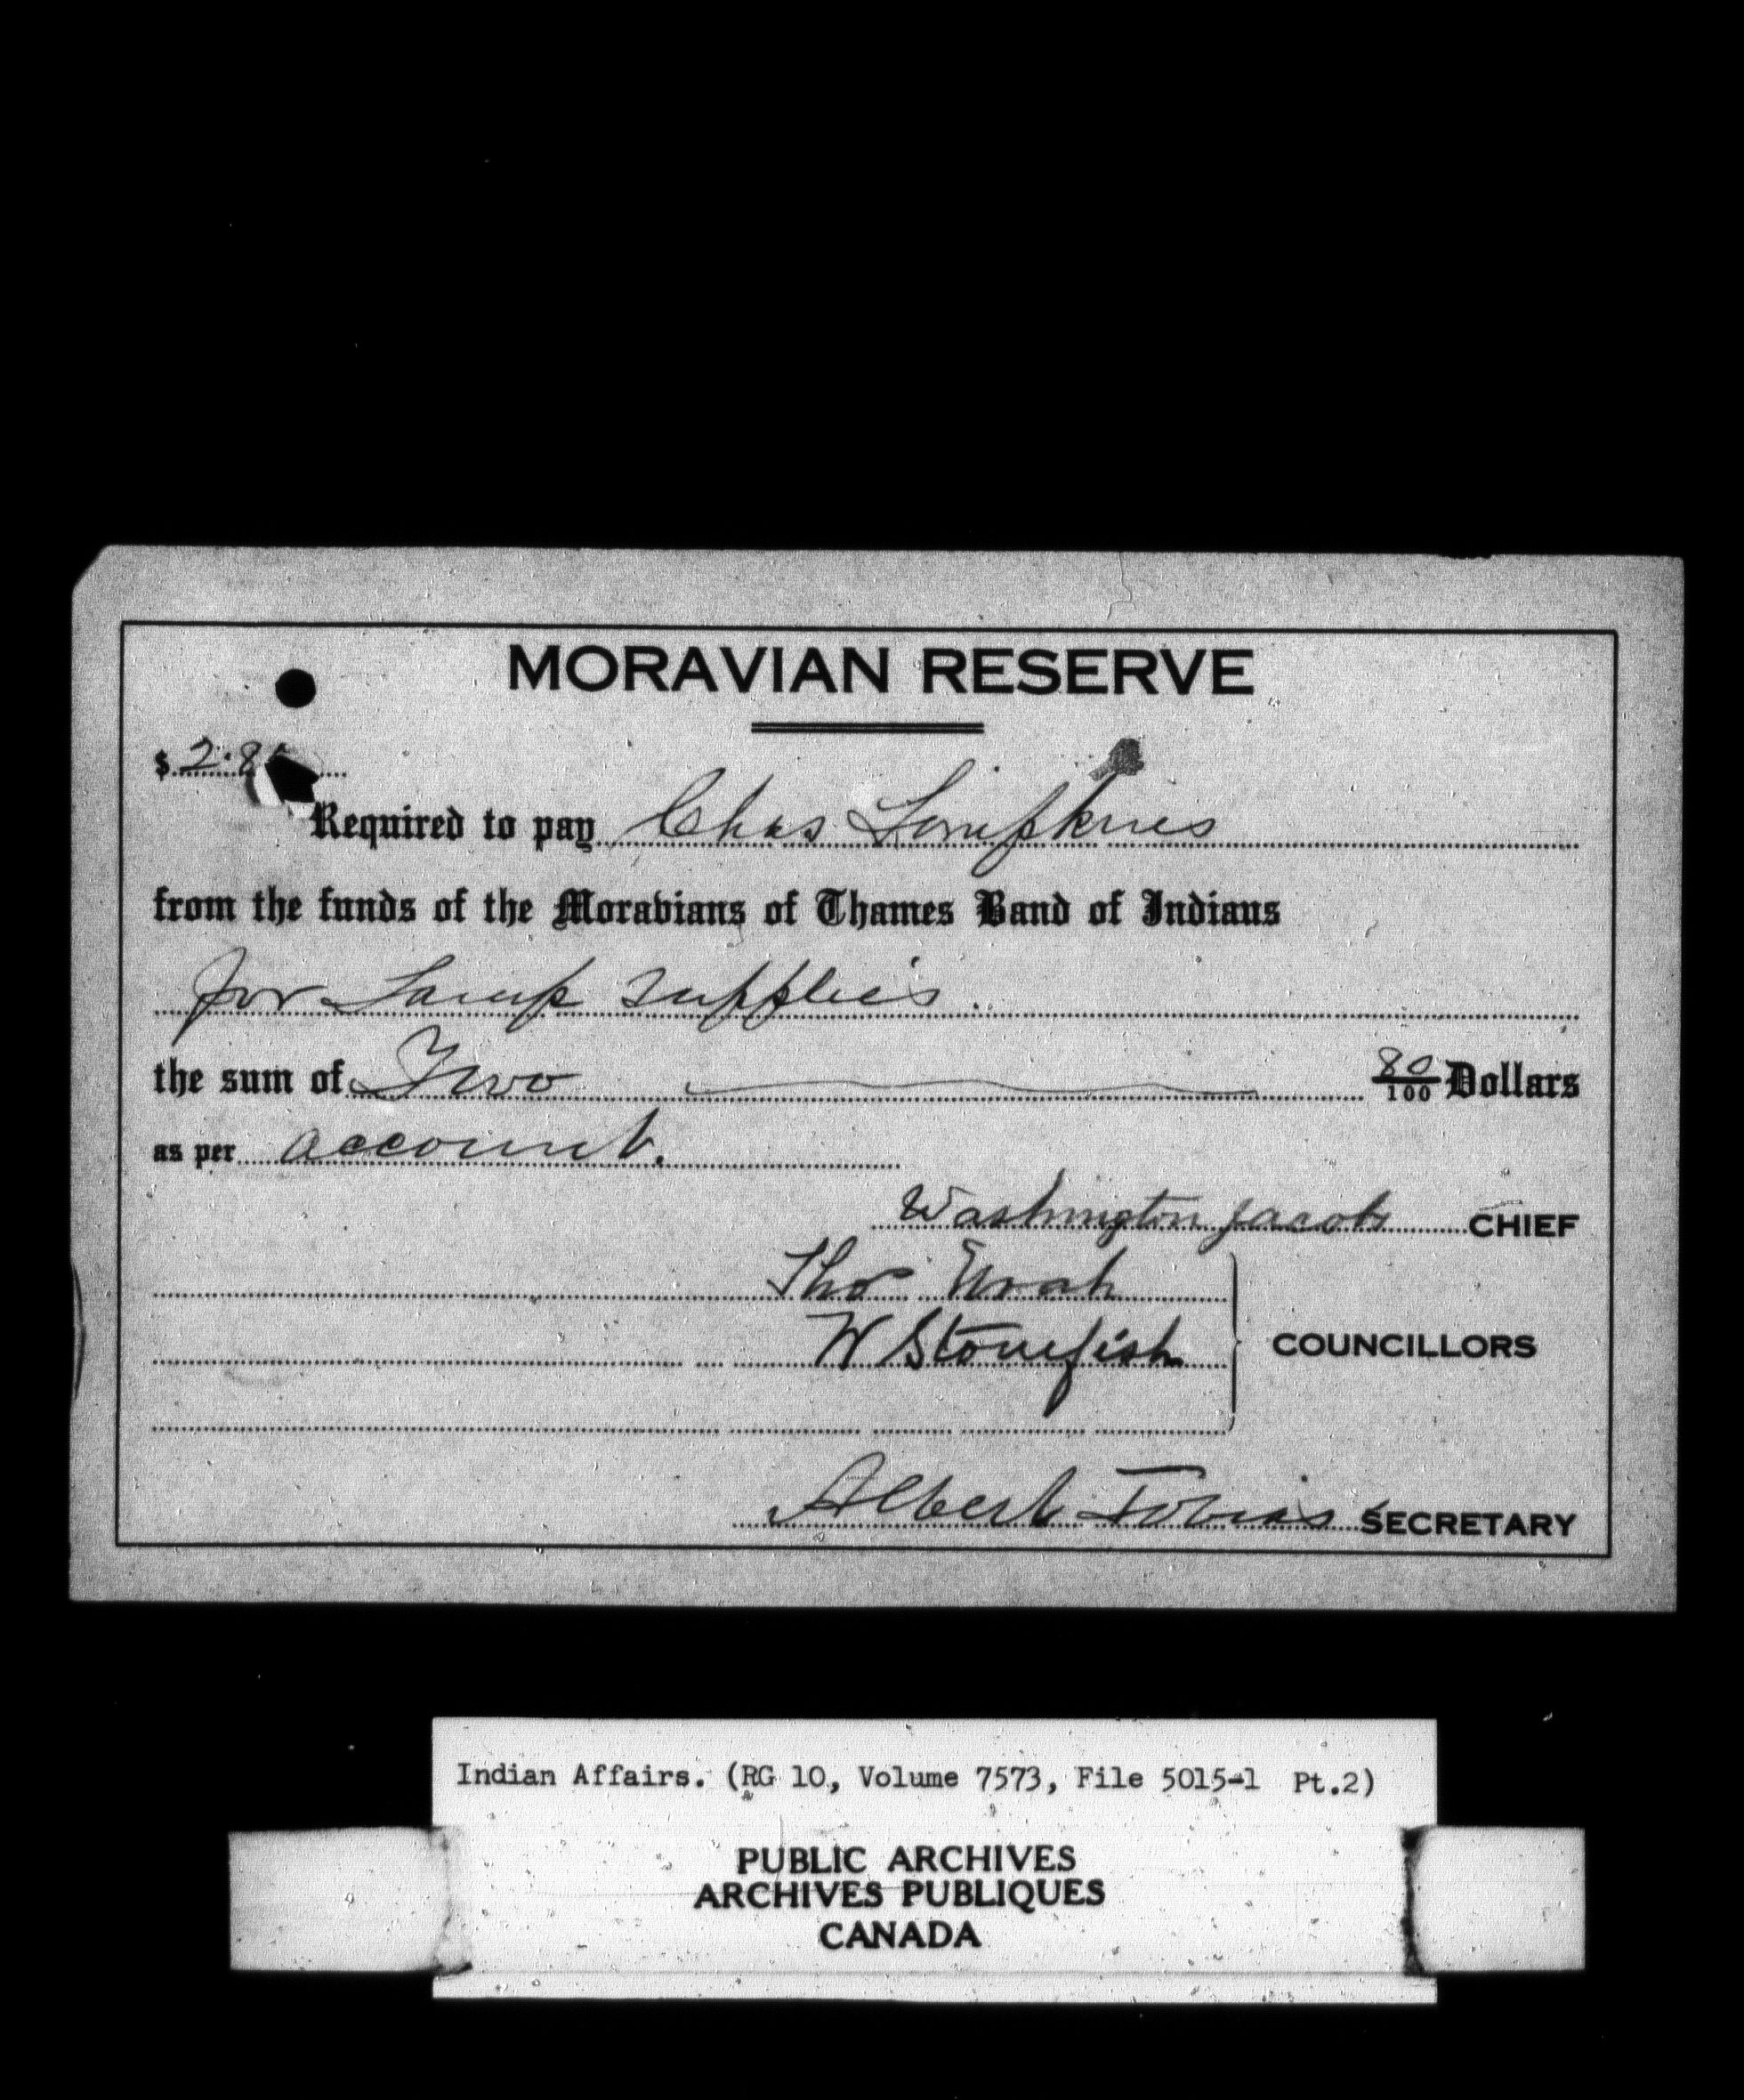 MORAVIAN RESERVE
$ 2.8
Required to pay Chas
from the funds of the Moravians of Thames Band of Indians
for Lamp supplies.
the sum of Two 80/100 Dollars
as per account.
Washington Jacobs CHIEF
Thos Noah
W Stonefish
COUNCILLORS
Albert Tobias SECRETARY
Indian Affairs. (RG 10, Volume 7573, File 5015-1 Pt.2)
PUBLIC ARCHIVES
ARCHIVES PUBLIQUES
CANADA